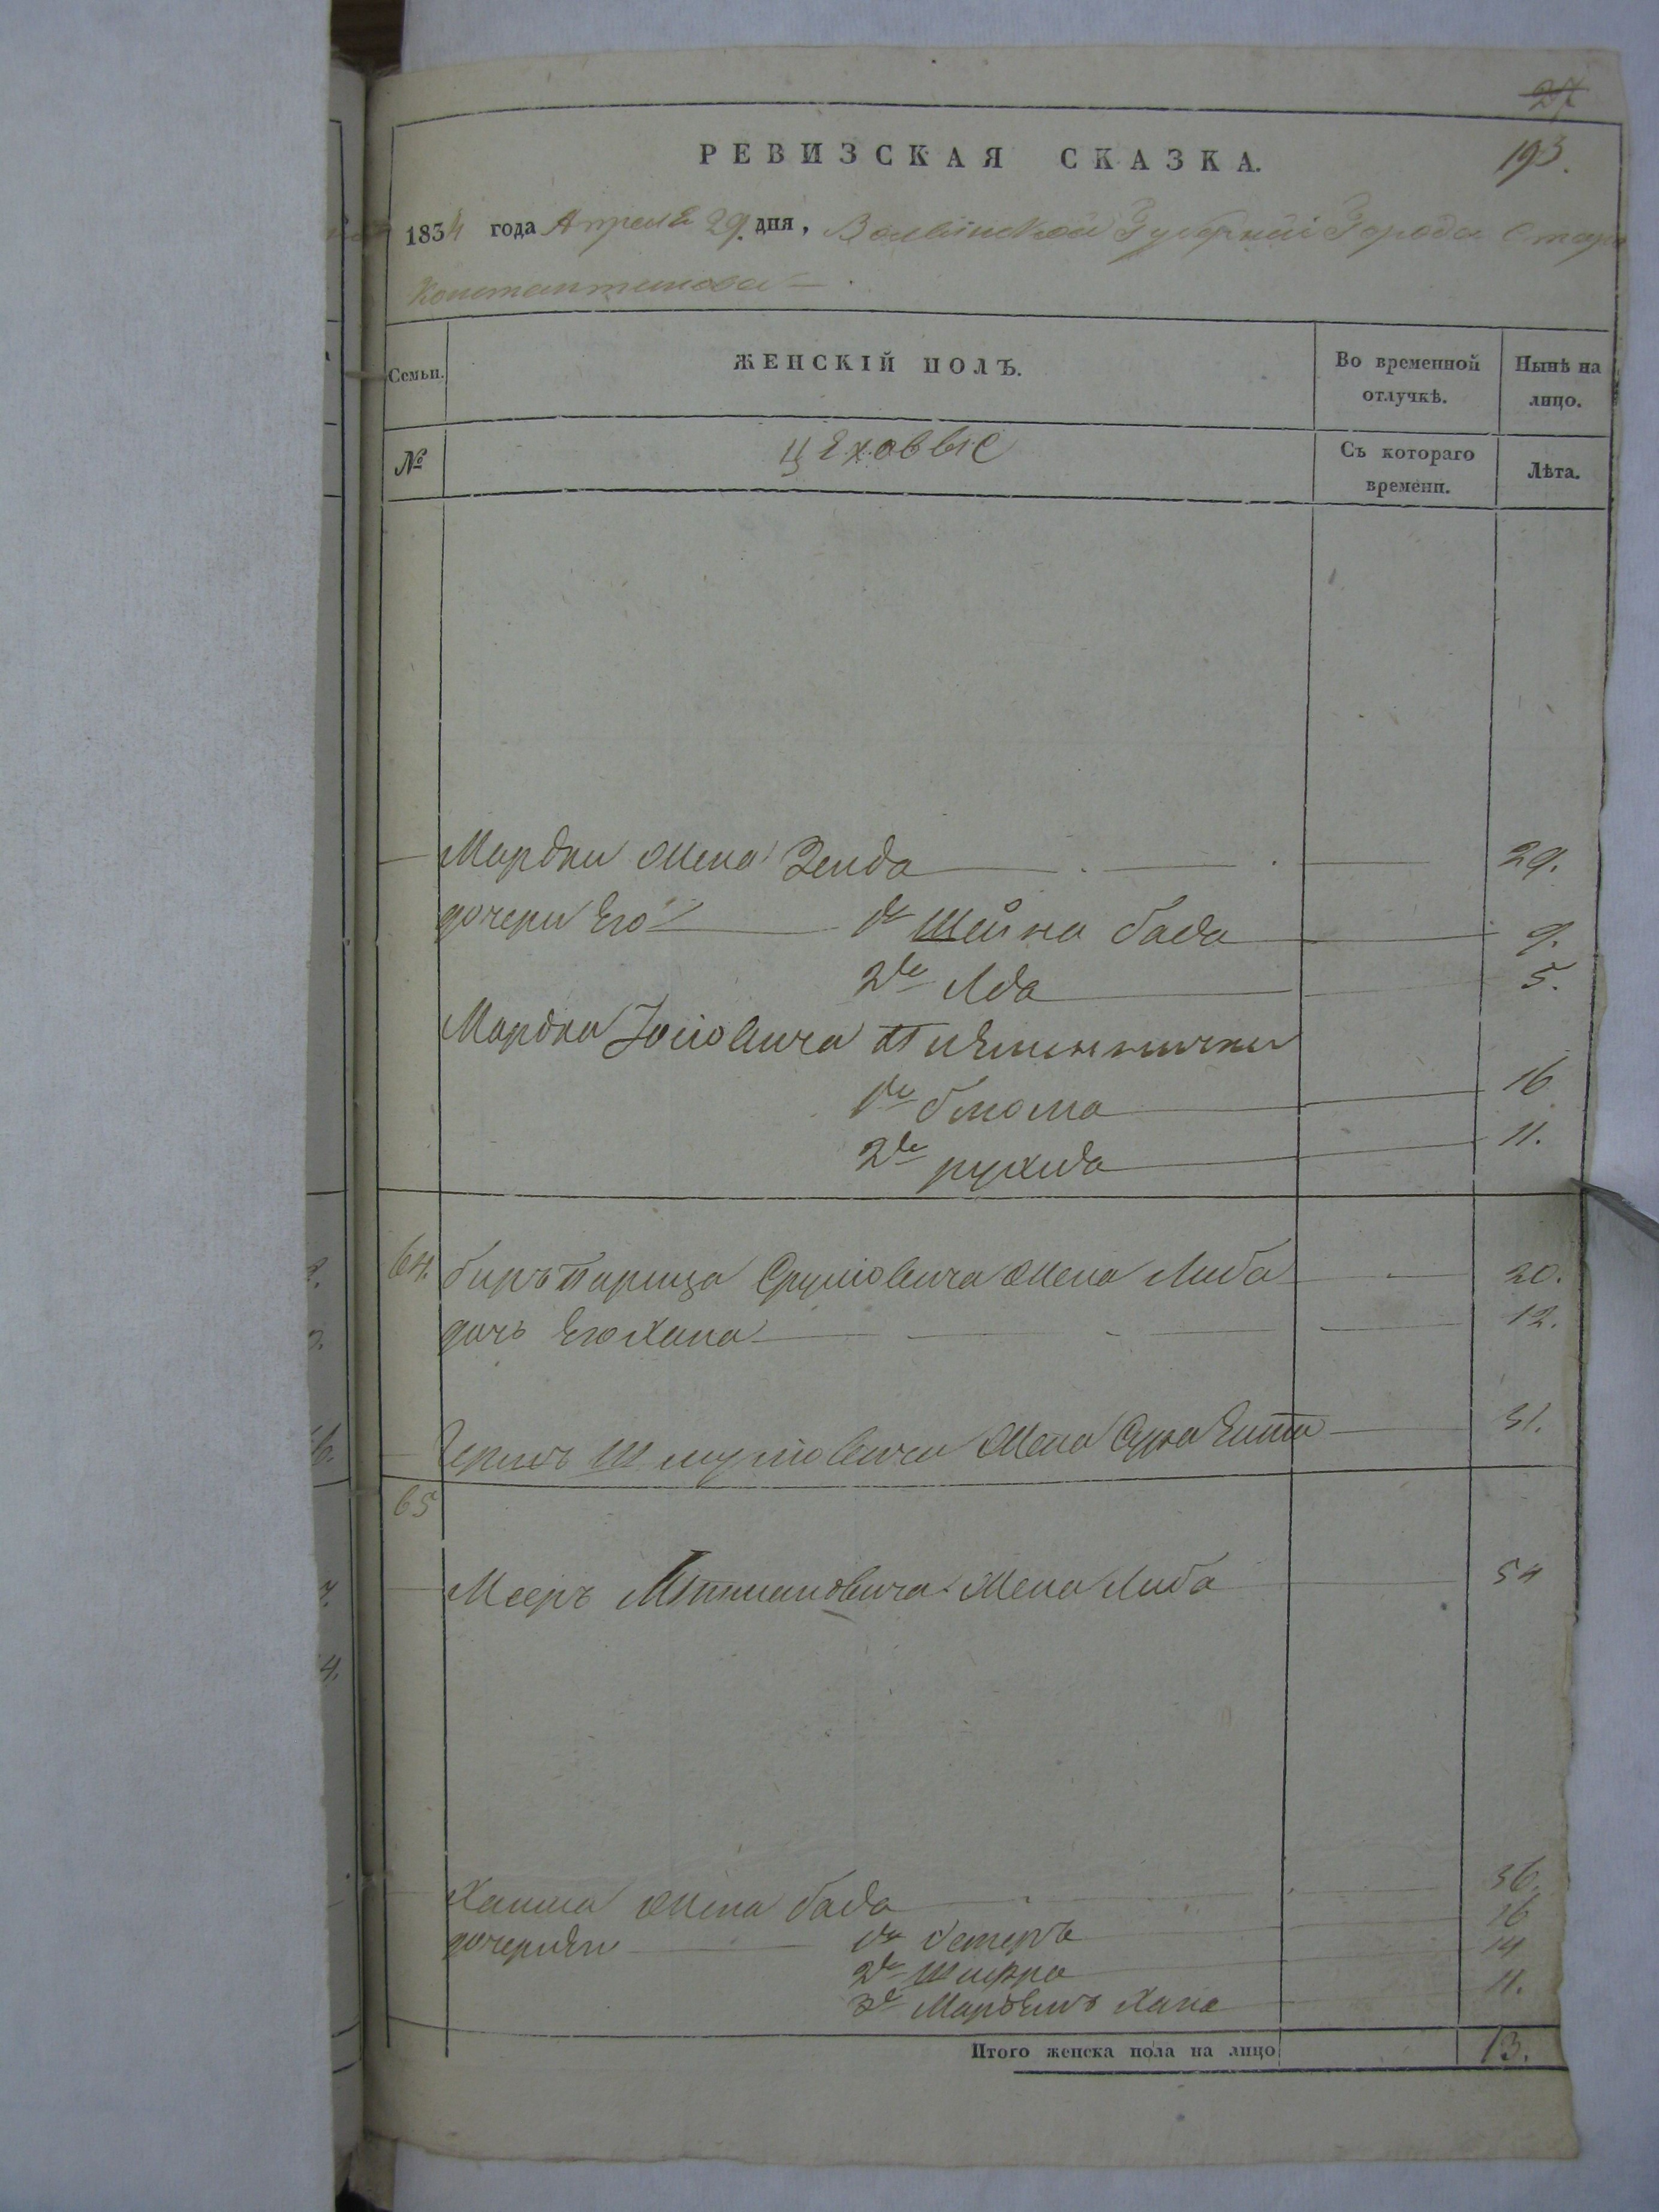 27
193.
РЕВИЗСКАЯ СКАЗКА.
1834 года Апреля 29 дня, Волынской Губернии Города Старо
Константинова
Семьи. ЖЕНСКІЙ ПОЛЪ. Во временной отлучкѣ. Нынѣ на лицо.
№ Цеховые Съ котораго времени. Лѣта.
Мордки жена Зелда 29.
дочери его 1я Шейна бася 9.
2я 5.
Мордка Іосіовича племяннички
1я блюма 16
2я рухля 11.
64. Сруліовича жена Либа 20.
дочь его Хана 12.
Шмуліовича жена Сура 31.
65
Мееръ жена Либа 54
Хаима жена бася 36.
дочери ея 1я Естеръ 16
2я Шифра 14
3я Хана 11.
Итого женска пола на лицо 13.